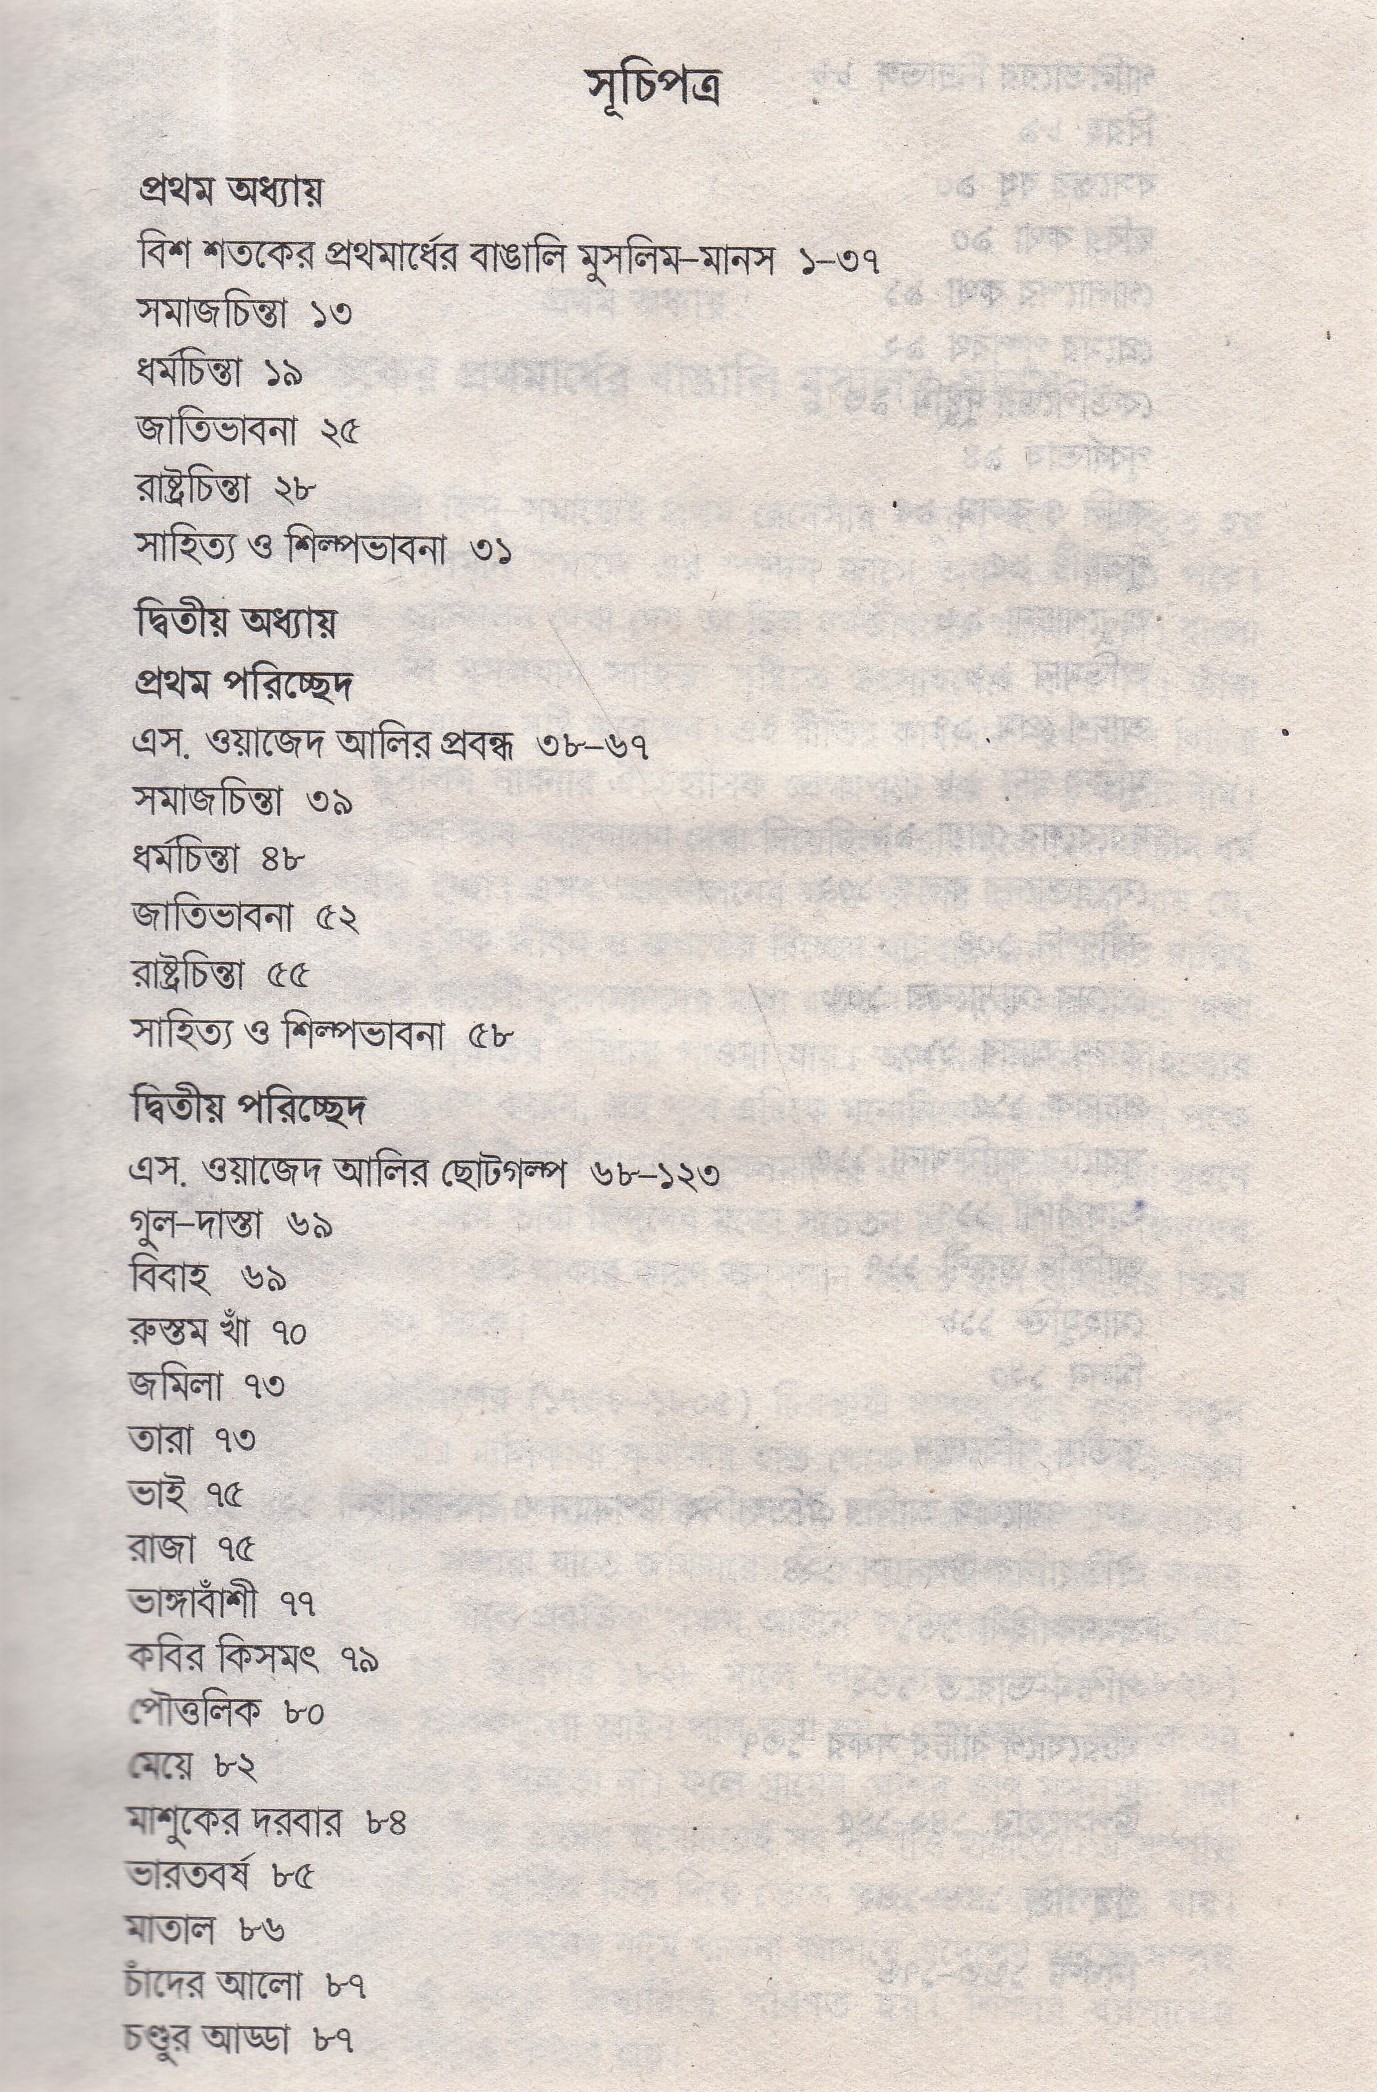 সূচিপত্র
প্রথম অধ্যায়
বিশ শতকের প্রথমার্ধের বাঙালি মুসলিম–মানস ১–৩৭
সমাজচিন্তা ১৩
ধর্মচিন্তা ১৯
জাতিভাবনা ২৫
রাষ্ট্রচিন্তা ২৮
সাহিত্য ও শিল্পভাবনা ৩১
দ্বিতীয় অধ্যায়
প্রথম পরিচ্ছেদ
এস. ওয়াজেদ আলির প্রবন্ধ ৩৮–৬৭
সমাজচিন্তা ৩৯
ধর্মচিন্তা ৪৮
জাতিভাবনা ৫২
রাষ্ট্রচিন্তা ৫৫
সাহিত্য ও শিল্পভাবনা ৫৮
দ্বিতীয় পরিচ্ছেদ
এস. ওয়াজেদ আলির ছোটগল্প ৬৮–১২৩
গুল–দাস্তা ৬৯
বিবাহ ৬৯
রুস্তম খাঁ ৭০
জমিলা ৭৩
তারা ৭৩
ভাই ৭৫
রাজা ৭৫
ভাঙ্গাবাঁশী ৭৭
কবির কিসমৎ ৭৯
পৌত্তলিক ৮০
মেয়ে ৮২
মাশুকের দরবার ৮৪
ভারতবর্ষ ৮৫
মাতাল ৮৬
চাঁদের আলো ৮৭
চণ্ডুর আড্ডা ৮৭